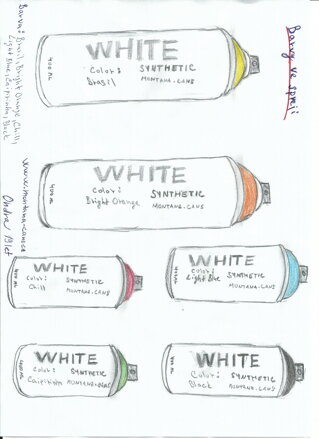 Barvy ve spreji
Barvy: Brasil, Bright Orange, Chill,
Light Blue, Caipirinha, Black
www.montana-cans.cz
400 ML
WHITE
Color:
Brasil
SYNTHETIC
MONTANA-CANS
400 ML
WHITE
Color:
Bright Orange
SYNTHETIC
MONTANA-CANS
400 ML
WHITE
Color:
Chill
SYNTHETIC
MONTANA-CANS
400 ML
WHITE
Color:
Light Blue
SYNTHETIC
MONTANA-CANS
400 ML
WHITE
Color:
SYNTHETIC
MONTANA-CANS
400 ML
WHITE
Color:
Black
SYNTHETIC
MONTANA-CANS